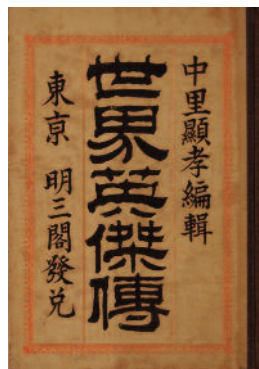 中里顯孝編輯
世界英傑傳
東京 明三閣發兌